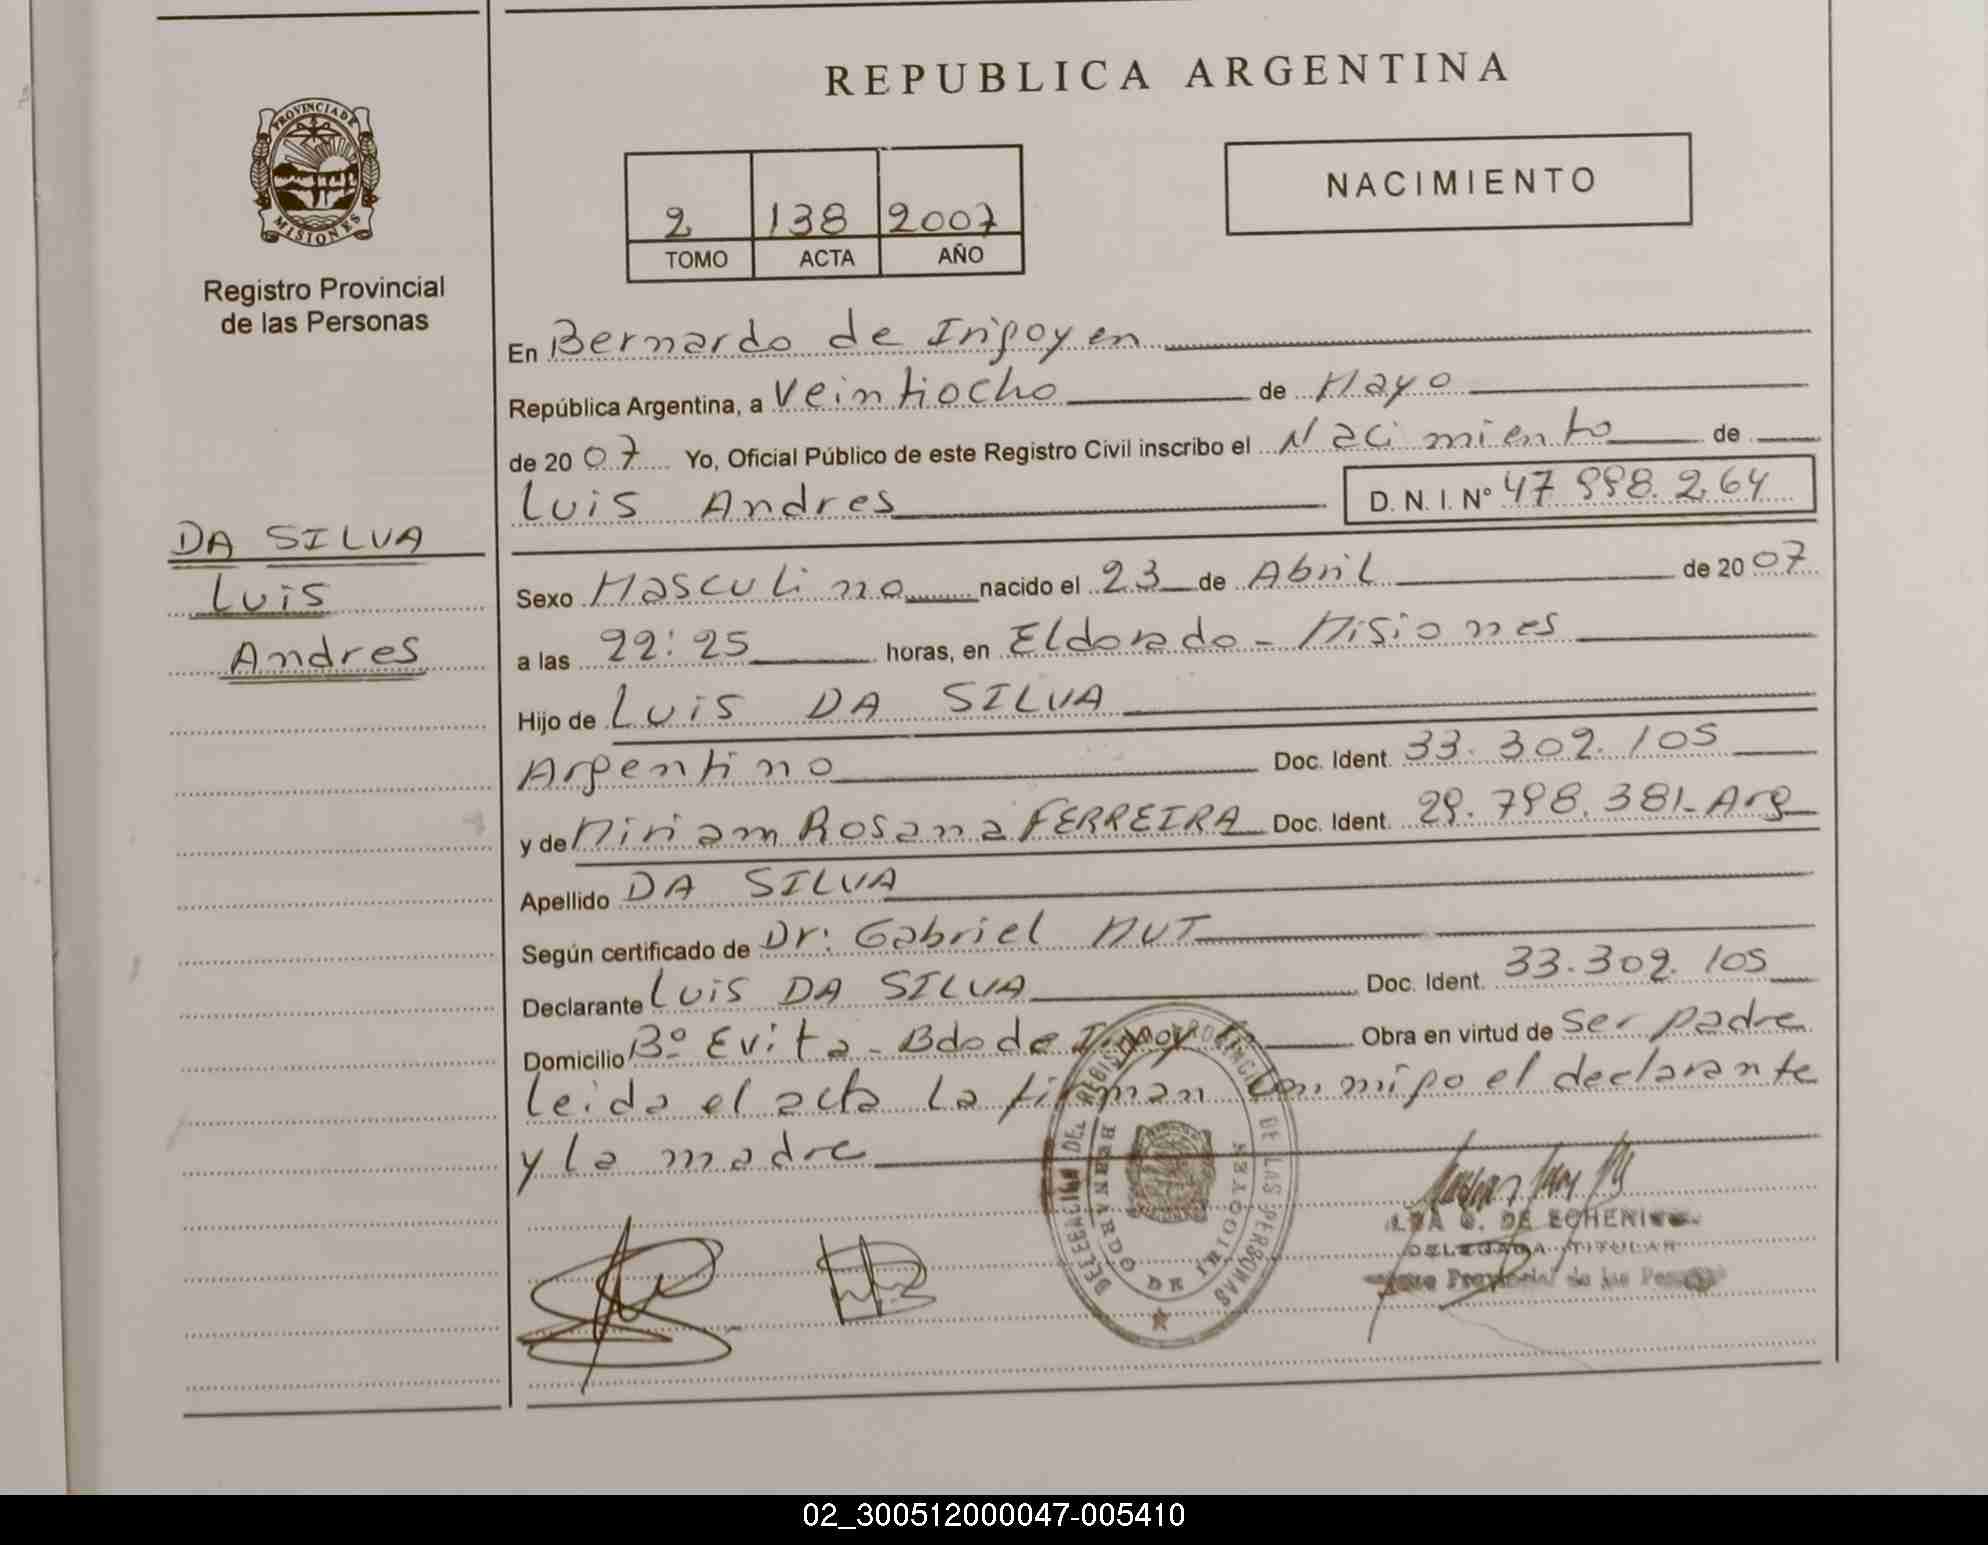 REPUBLICA ARGENTINA
PROVINCIA DE
MISIONES
Registro Provincial
de las Personas
2 138 2007
TOMO ACTA AÑO
NACIMIENTO
En Bernardo de Irigoyen
República Argentina, a Veintiocho de Mayo
de 2007 Yo, Oficial Público de este Registro Civil inscribo el Nacimiento de
Luis Andres D. N. I. Nº 47 998.264
DA SILVA
Luis
Andres
Sexo Masculino nacido el 23 de Abril de 2007
a las 22:25 horas, en Eldorado - Misiones
Hijo de Luis DA SILVA
Argentino Doc. Ident. 33.302.105
y de Miriam Rosana FERREIRA Doc. Ident. 29.798.381-Arg
Apellido DA SILVA
Según certificado de Dr: Gabriel MUT
Declarante Luis DA SILVA Doc. Ident. 33.302.105
Domicilio Bº Evita - Bdo de Irigoy Obra en virtud de ser padre
Leida el acta la firman conmigo el declarante
y la madre
DELEGACION DEL REGISTRO PROVINCIAL DE LAS PERSONAS
BERNARDO DE IRIGOYEN
DE ECHENI
DELEGADA TITULAR
Provincial de las
02_300512000047-005410